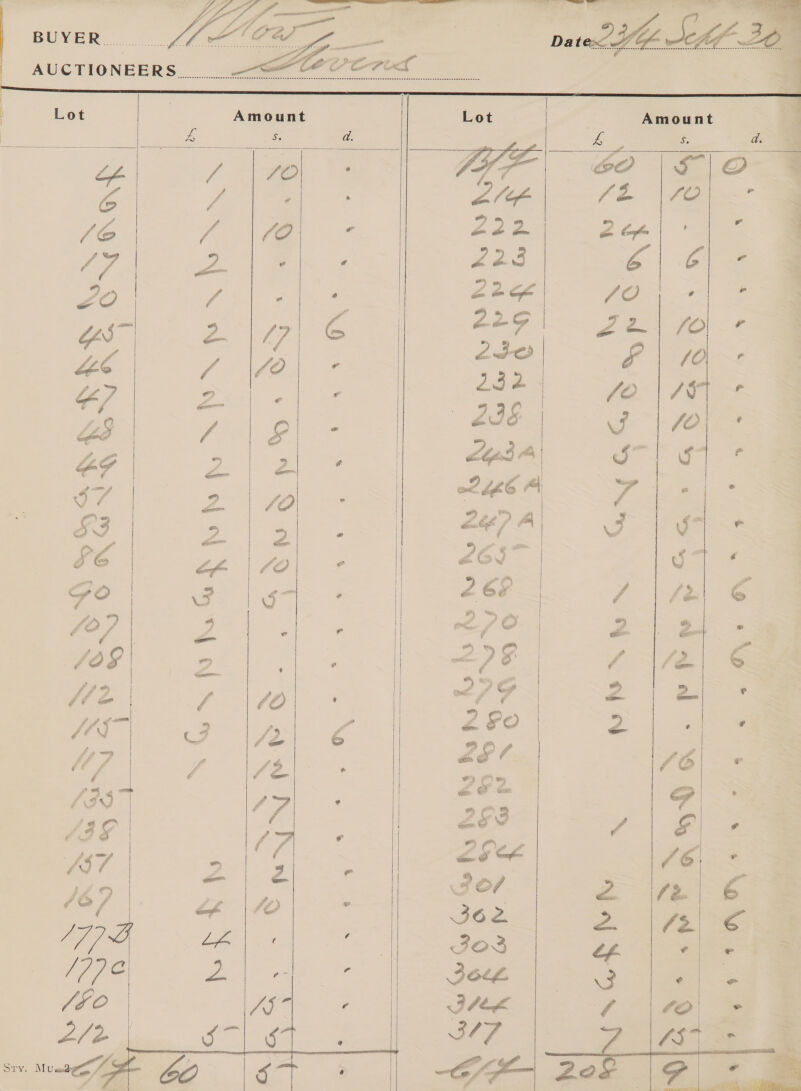 BUYER Wilow Date 23/4 Sept 30
AUCTIONEERS Stevens
Lot Amount
£ s. d.
4 1 10 "
6 1 " "
16 1 10 "
17 2 " "
20 1 " "
45 2 17 6
46 1 10 "
47 2 " "
48 1 8 "
49 2 2 "
57 2 10 "
83 2 2 "
86 4 10 "
90 3 5 "
107 2 " "
108 2 " "
112 1 10 "
115 3 12 6
117 1 12 "
135 17 "
138 17 "
157 2 2 "
167 4 10 "
177B 4 " "
177c 2 " "
180 15 "
212 5 5 "
Srv. Mus 2
C/F 60 5 "
Lot Amount
£ s. d.
B/F 60 5 0
214 12 10 "
222 24 " "
223 6 6 "
224 10 " "
229 22 10 "
230 8 10 "
232 10 15 "
238 3 10 "
243A 5 5 "
246A 7 " "
247A 3 5 "
265 5 "
268 1 12 6
270 2 2 "
278 1 12 6
279 2 2 "
280 2 " "
281 16 "
282 9 "
283 1 8 "
284 16 "
301 2 12 6
302 2 12 6
303 4 " "
304 3 " "
314 1 10 "
317 7 15 "
C/F 208 9 "